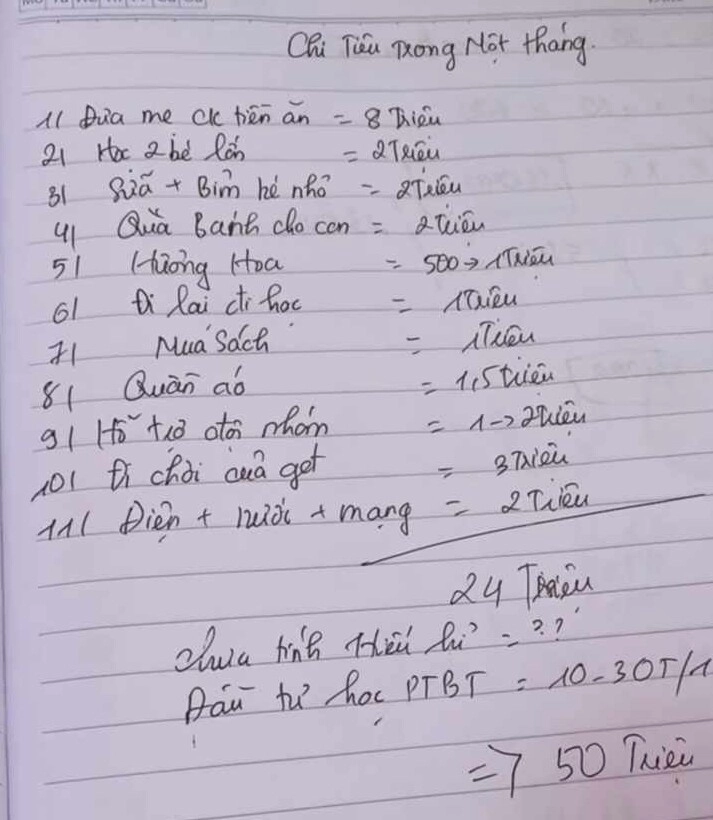 Chi Tiêu Trong Một tháng.
1/ Đưa mẹ ck tiền ăn = 8 Triệu
2/ Học 2 bé lớn = 2 Triệu
3/ Sữa + Bỉm bé nhỏ = 2 Triệu
4/ Quà Bánh cho con = 2 triệu
5/ Hương Hoa = 500 → 1 Triệu
6/ Đi lại đi học = 1 Triệu
7/ Mua Sách = 1 Triệu
8/ Quần áo = 1,5 triệu
9/ Hỗ trợ đội nhóm = 1 → 2 triệu
10/ Đi chơi = 3 Triệu
11/ Điện + nước + mạng = 2 Triệu
24 Triệu
chưa tính Hiếu hỉ = ??
Đầu tư học PTBT = 10 - 30T/1
=> 50 Triệu